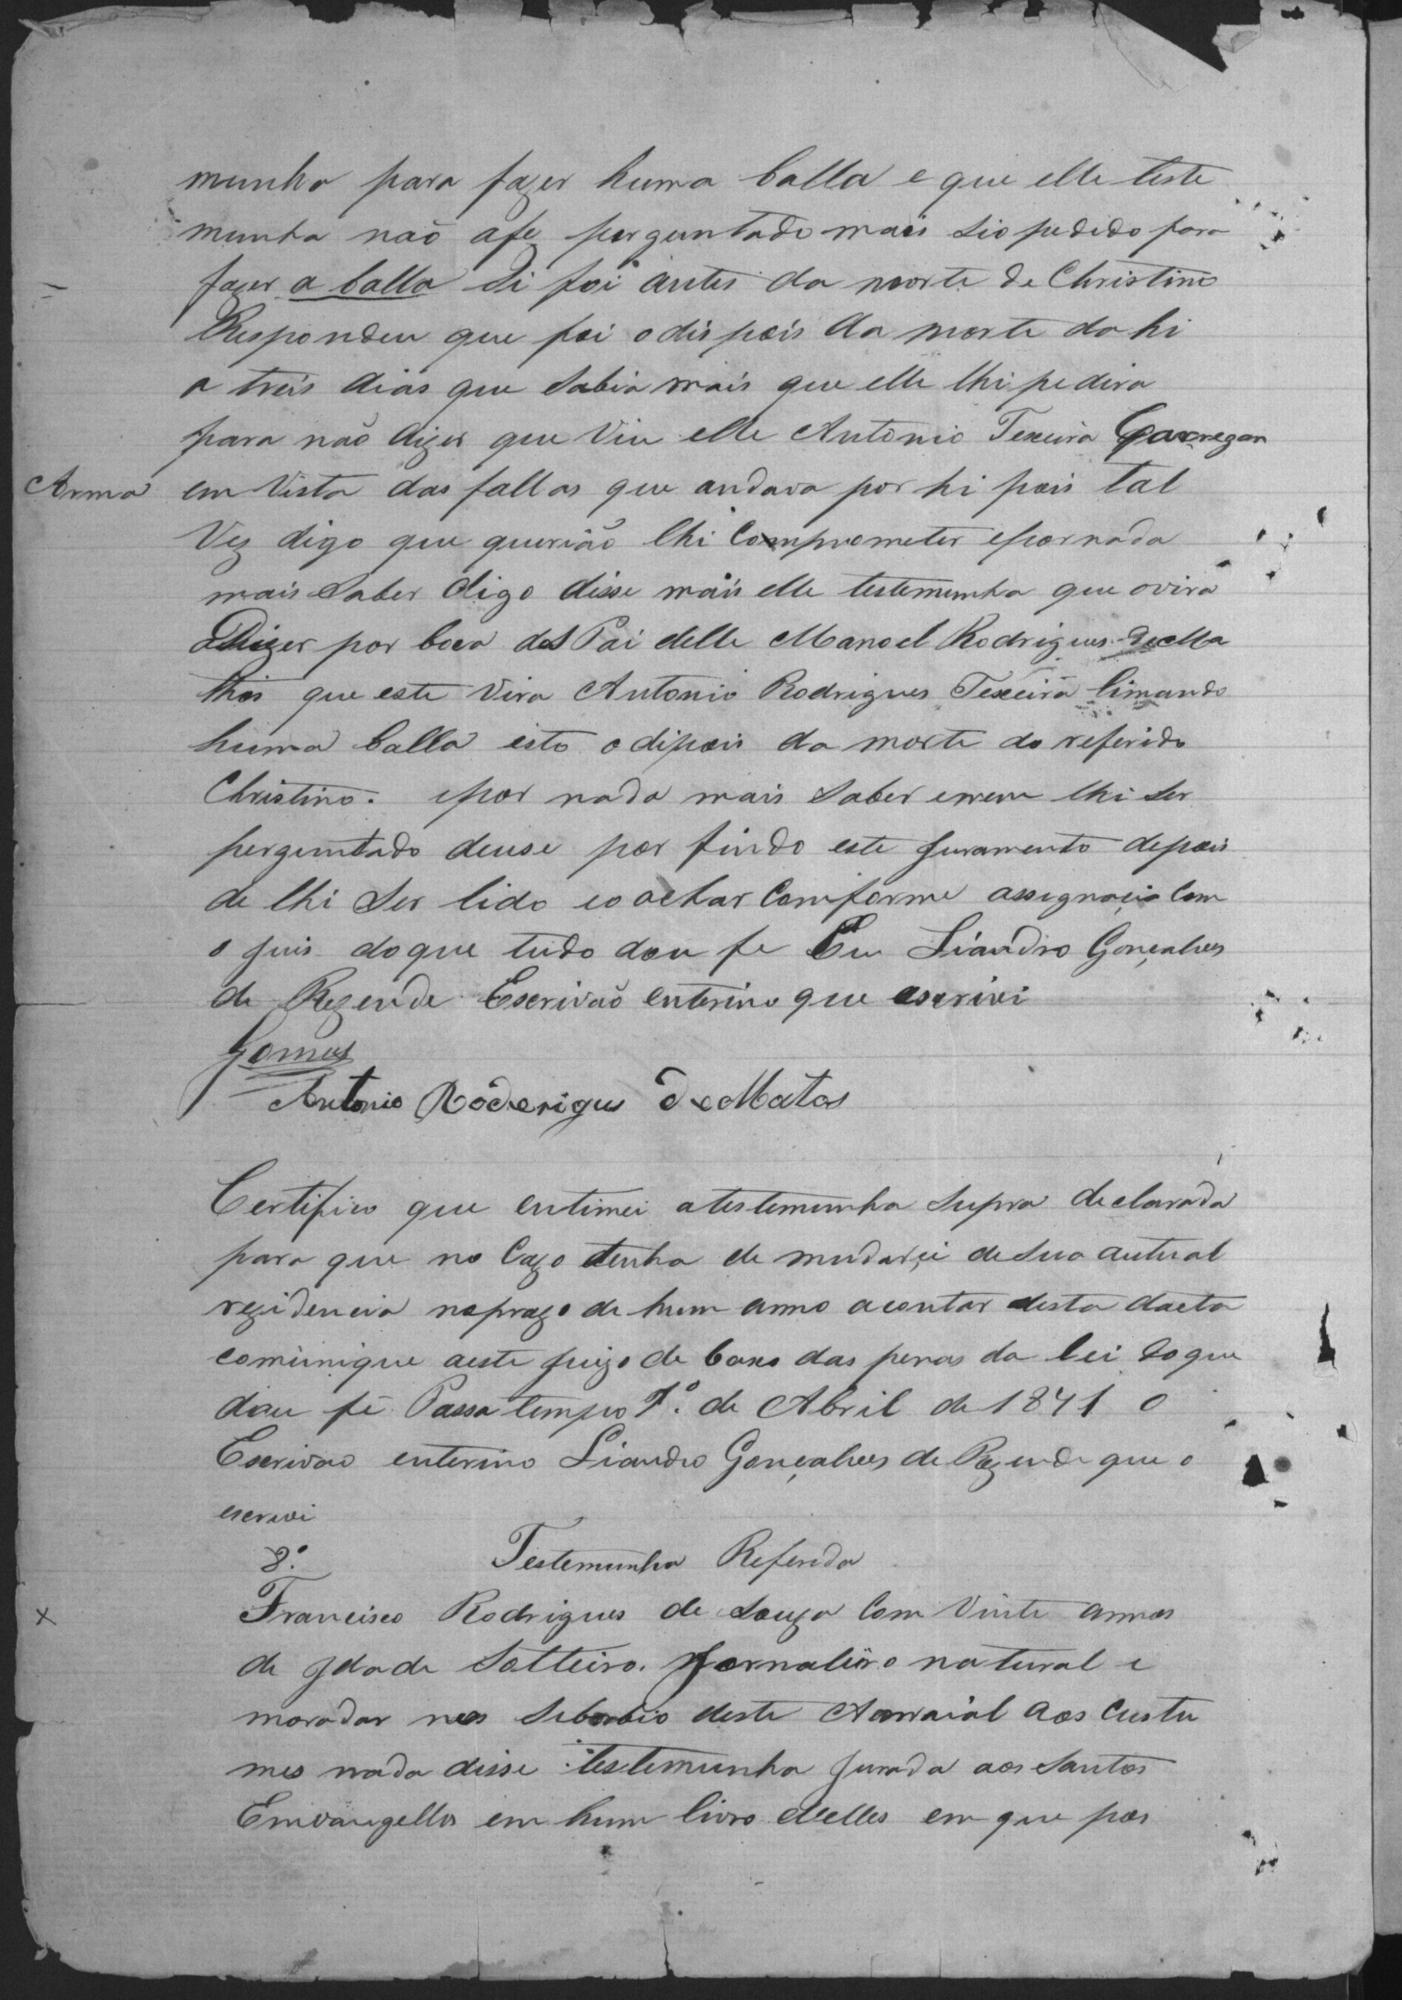 munha para fazer huma balla e que elle teste
munha não afes perguntado mais sio pedido para
fazer a balla si foi antes da morte de Christino
Respondeu que foi odispois da morte dahi
a treis dias que sabia mais que elle lhi pedira
para não dizer que viu elle Antonio Texeira Carregar
Arma em vista das fallas que andava por hi pois tal
Vez digo que querião lhi Comprometer epor nada
mais saber digo disse mais elle testemunha que ovira
Dizer por boca do Pai delle Manoel Rodrigues de Ma
thos que este vira Antonio Rodrigues Texeira limando
huma balla isto odipois da morte do referido
Christino. epor nada mais saber enem lhi ser
perguntado deuse por findo este juramento depois
de lhi ser lido eo achar Comforme assigna Com
o juis doque tudo dou fe Eu Liandro Gonçalves
de Rezende Escrivão enterino que escrivi
Gomes
Antonio Roderigus de Matos
Certifico que entimei atestemunha supra declarada
para que no Cazo tenha de mudarçi de sua autual
rezidencia noprazo de hum anno acontar desta dacta
comunique aeste juizo de baxo das penas da lei doque
dou fé Passatempo 1º. de Abril de 1841 O
Escrivão enterino Liandro Gonçalves de Rezende que o
escrivi
8ª. Testemunha Referida
X Francisco Rodrigues de Souza Com Vinte annos
de Idade Solteiro. Jornaleiro natural e
morador nos Suborbio deste Arraial aos Custu
mes nada disse testemunha jurada aos Santos
Emvangellos em hum livro delles em que pos